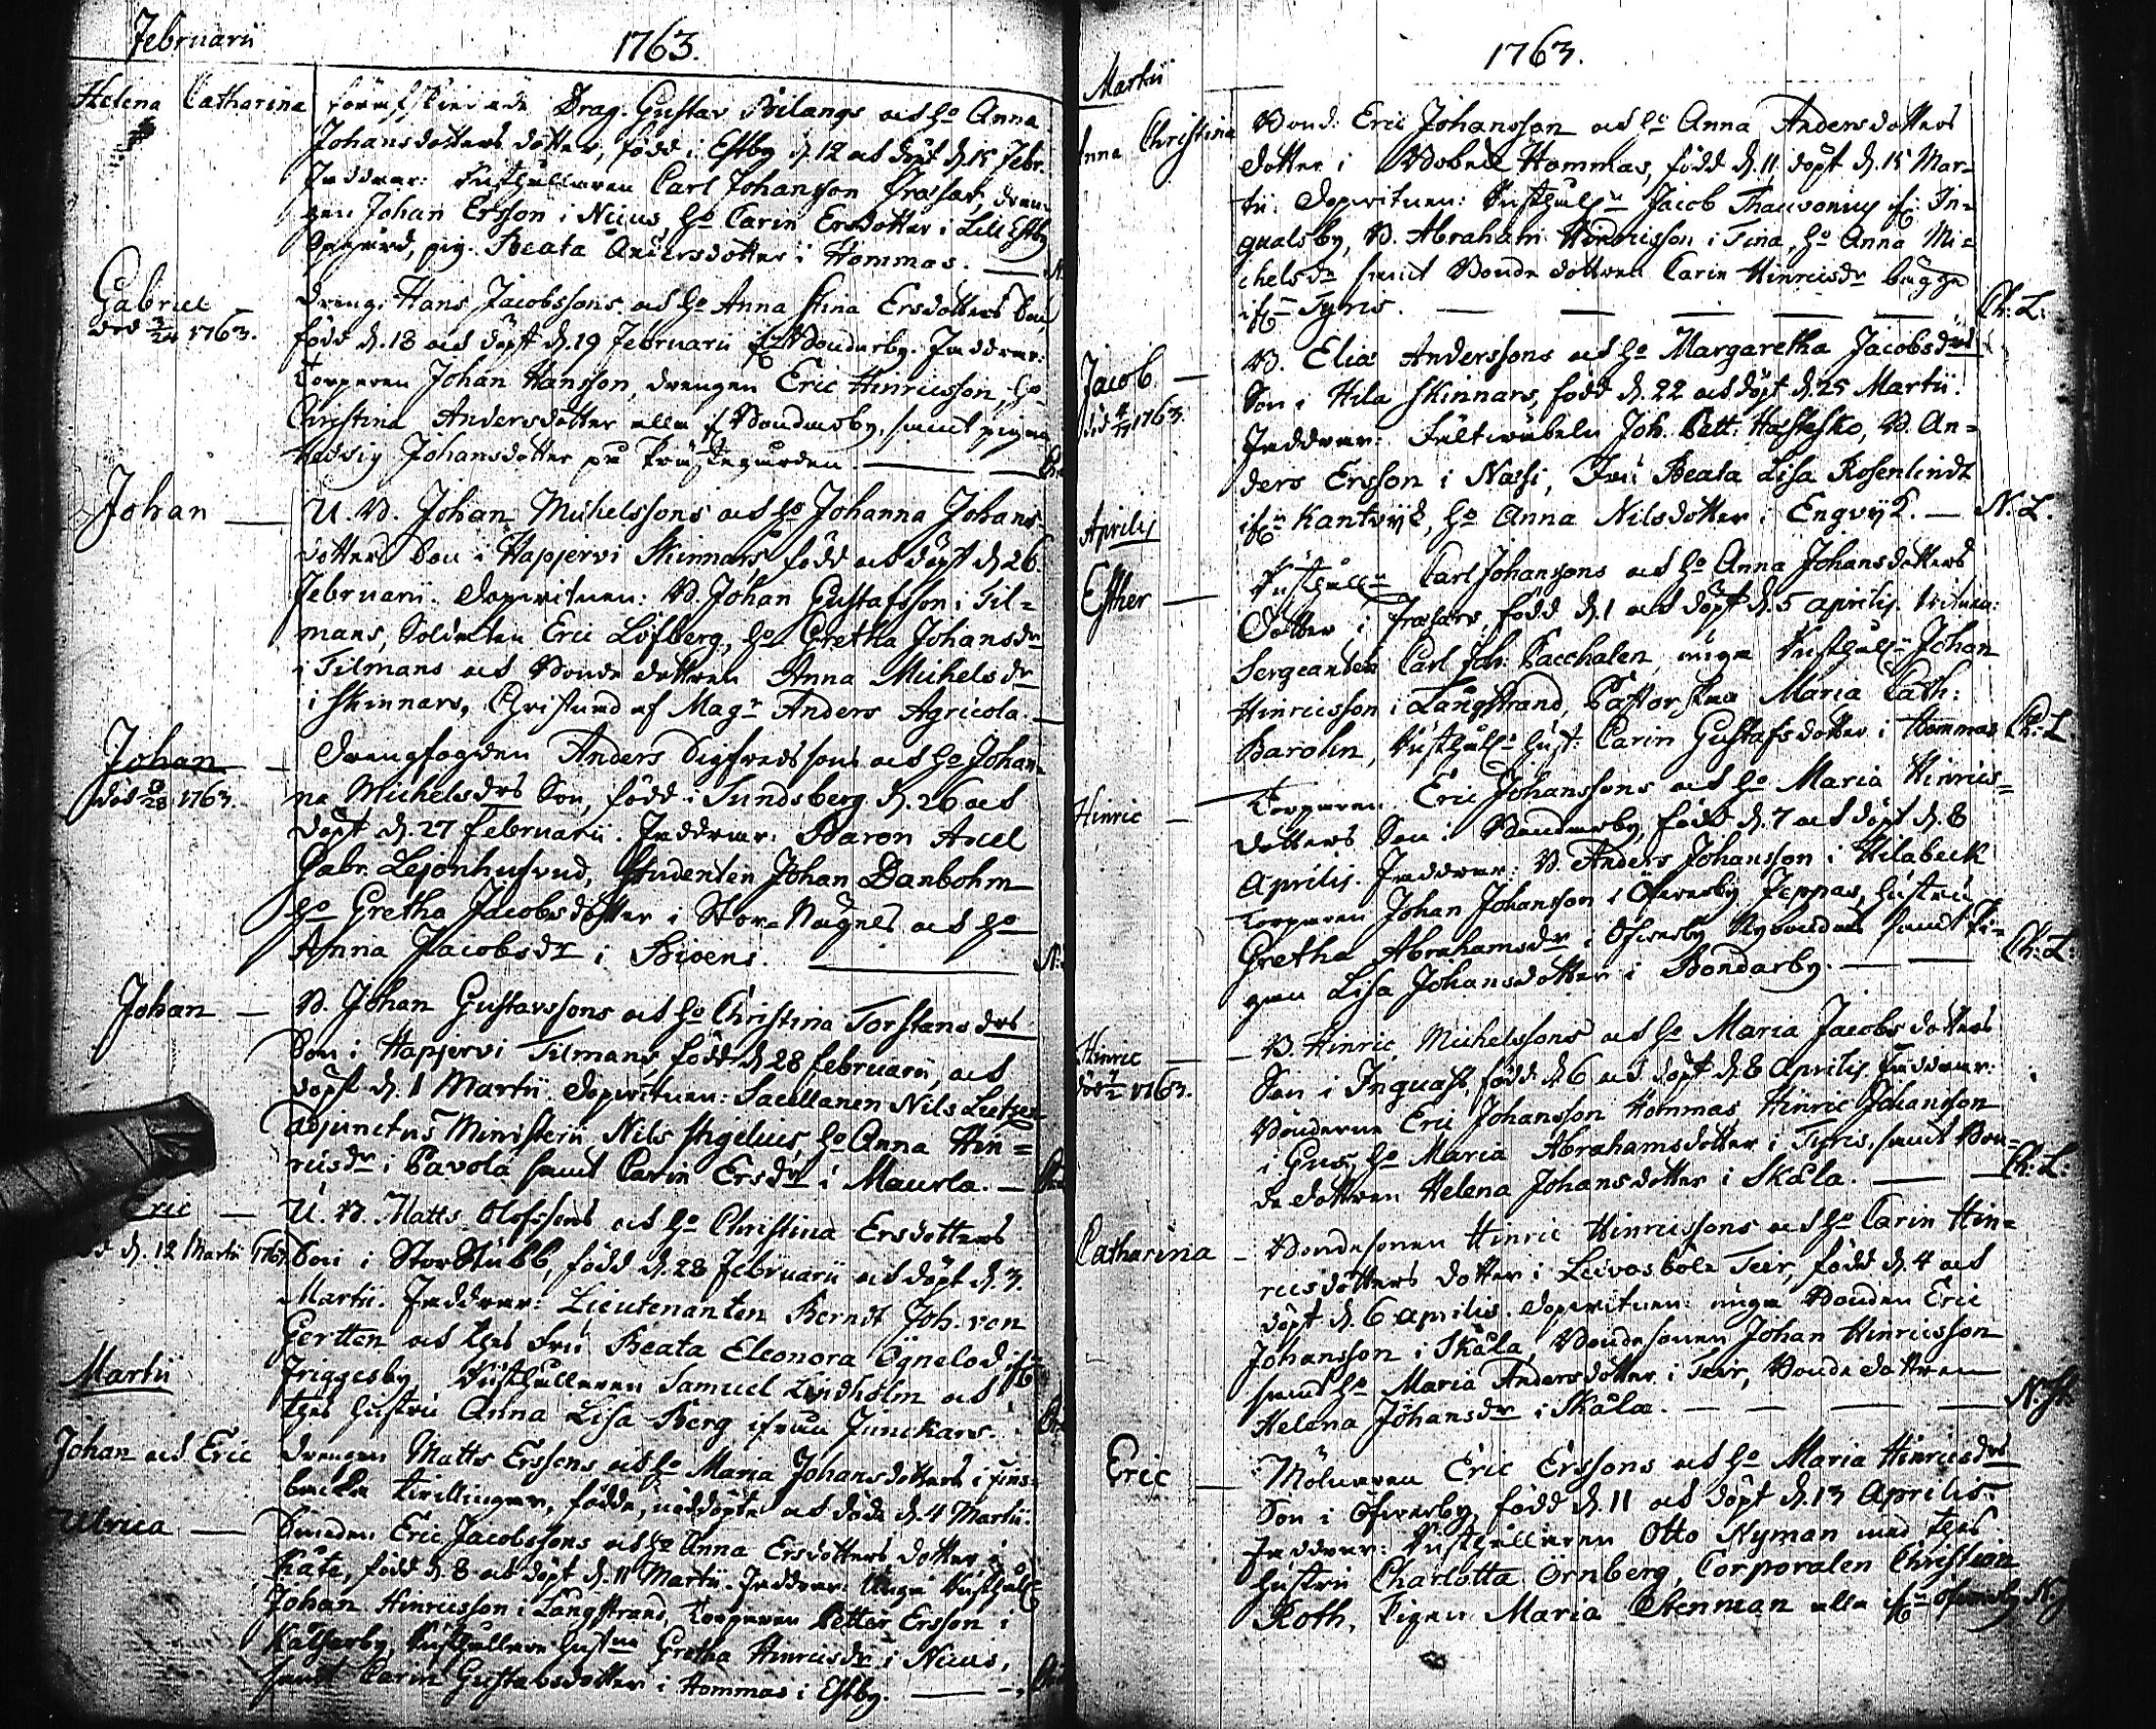 Februarii
1763.
Helena Catharina
Drag. Gustav Bilangs och ho Anna
Johansdotters dotter, född i Estby d. 12 och döpt d. 15 Febr.
Faddrar: Rusthållaren Carl Johansson Frassar, dren-
gen Johan Ersson i Nius, ho Carin Ersdotter i Lill Estby
pig. Beata Andersdotter i Hommas.
Gabriel
död 3/24 1763.
Dreng. Hans Jacobssons och ho Anna Stina Ersdotters Son,
född d. 18 och döpt d. 19 Februarii Bondarby. Faddrar:
Torparen Johan Hansson, drengen Eric Hinricsson, ho
Christina Andersdotter alla if. Bondarby, samt pigan
Hedvig Johansdotter på Prästegården.
Johan
U. B. Johan Michelssons och ho Johanna Johans-
dotters Son i Hapjervi Skinnars, född och döpt d. 26.
Februarii. Dopvitnen: B. Johan Gustafsson i Til=
mans, Soldaten Eric Löfberg, ho Gretha Johansdr
i Tilmans och Bonde dottren Anna Michelsdr
i Skinnars, Christnad af Magr Anders Agricola.
Johan
död 8/28 1763.
Drengfogden Anders Sigfredssons och ho Johan-
na Michelsdrs Son, född i Sundsberg d. 26 och
döpt d. 27 februarii. Faddrar: Baron Axel
Gabr. Lejonhufvud, Studenten Johan Danbohm
ho Gretha Jacobsdotter i Stor Wagnes och ho
Anna Jacobsdr i Bioens.
Johan
B. Johan Gustavssons och ho Christina Torstansdrs
Son i Hapjervi Tilmans, född d. 28 februarii, och
döpt d. 1 Martii. Dopvitnen: Sacellanen Nils
adjunctus Ministerii Nils Stigelius, ho Anna Hin=
ricsdr i Pavola samt Carin Ersdr i Maurla.
Eric
d. 12 Martii 1763
U. B. Matts Olofssons och ho Christina Ersdotters
Son i Stor Stubb, född d. 28 Februarii och döpt d. 3.
Martii. Faddrar: Lieutenanten Berndt Joh. von
Gertten och thes Fru Beata Eleonora Ögnelod
Friggesby Rusthållaren Samuel Lindholm och
thes hustru Anna Lisa Berg ifrån Junckars.
Martii
Johan och Eric
Drengen Matts Erssons och ho Maria Johansdotters i Fins-
backa tvillingar, födde, nöddöpte och döde d. 4 Martii.
Ulrica
Smeden Eric Jacobssons och ho Anna Ersdotters dotter i
Kåta, född d. 8 och döpt d. 11 Martii. Faddrar: unga
Johan Hinricsson i Långstrand, Torparen Petter Ersson i
Gretha Hinricsdr i Nius,
samt Carin Gustavsdotter i Hommas i Estby.
1763.
Martii
Anna Christina
Bond. Eric Johansson och ho Anna Andersdotters
dotter i Hommas, född d. 11, döpt d. 15 Mar-
tii. Dopvitnen: Jacob Thauvonius if: In-
gvalsby, B. Abraham Hindricsson i Tina, ho Anna Mi-
chelsdr samt Bonde dottren Carin Hinricsdr bägge
ifrn Tyris. Ch: L:
Jacob
död 4/4 1763.
B. Elias Anderssons och ho Margaretha Jacobsdrs
Son i Hila Skinnars, född d. 22 och döpt d. 25 Martii.
Faddrar: Fältwäbeln Joh. Pett. Hästesko, B. An-
ders Ersson i Nässi, Fru Beata Lisa Rosenlindt
ifrn Kantvijk, ho Anna Nilsdotter i Engvijk. N. L.
Aprilis
Esther
Carl Johanssons och ho Anna Johansdotters
Dotter i Frassars, född d. 1 och döpt d. 5 aprilis. vitnen:
Sergeanten Carl Joh. Pacchalen, unga Johan
Hinricsson i Långstrand, Pastorskan Maria Cath:
Barolin, Carin Gustafsdotter i Hommas Ch: L.
Hinric
Torparen Eric Johanssons och ho Maria Hinrics-
dotters Son i Bondarby, född d. 7 och döpt d. 8
Aprilis. Faddrar: B. Anders Johansson i Hilabeck
Torparen Johan Johansson i Öfverby Jeppas, hustru
Gretha Abrahamsdr i Öfverby samt Pi-
gan Lisa Johansdotter i Bondarby. Ch: L:
Hinric
1763.
B. Hinric Michelssons och ho Maria Jacobsdotters
Son i Ingvals, född d. 6 och döpt d. 8 Aprilis. Faddrar:
Bönderne Eric Johansson Hommas, Hinric Johansson
i Gus, ho Maria Abrahamsdotter i Tyris, samt Bon-
de dottren Helena Johansdotter i Skåla. Ch: L:
Catharina
Bondesonen Hinric Hinricssons och ho Carin Hin-
ricsdotters dotter i Leivosböle Teir, född d. 4 och
döpt d. 6 aprilis. Dopvitnen: unga Bonden Eric
Johansson i Skåla, Bondesonen Johan Hinricsson
samt ho Maria Andersdotter i Teir, Bonde dottren
Helena Johansdr i Skåla. N. St.
Eric
Mölnaren Eric Erssons och ho Maria Hinricsdrs
Son i Öfverby, född d. 11 och döpt d. 13 Aprilis.
Faddrar: Rusthållaren Otto Nyman med thes
hustru Charlotta Örnberg, Corporalen Christian
Roth, Pigan Maria Stenman alla ifrn Öfverby